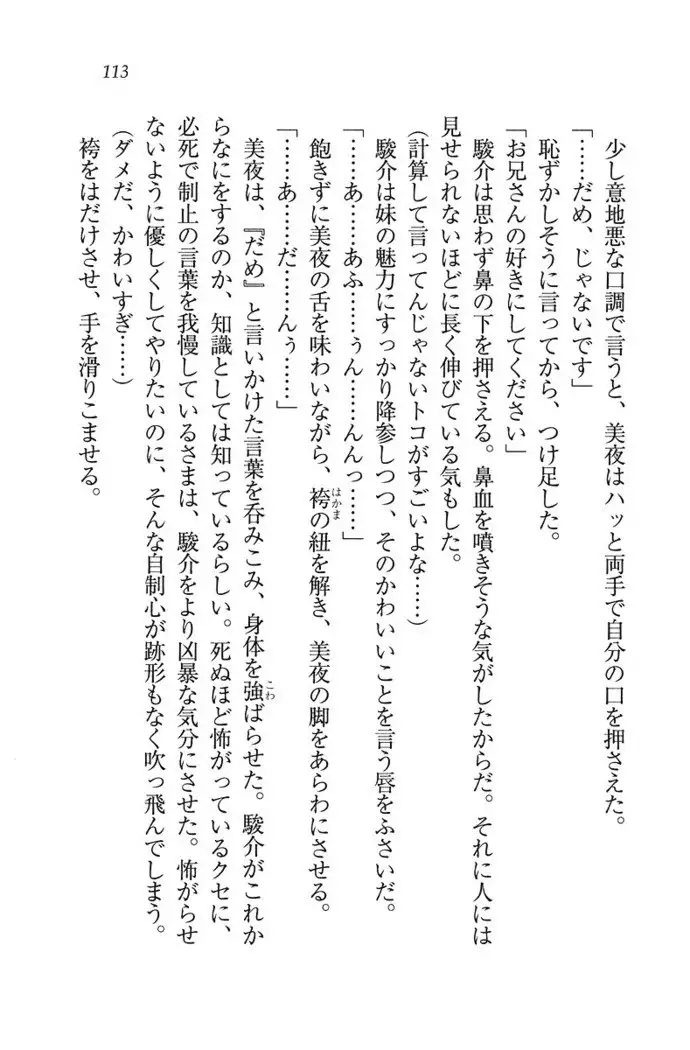 113
少し意地悪な口調で言うと、美夜はハッと両手で自分の口を押さえた。
「……だめ、じゃないです」
恥ずかしそうに言ってから、つけ足した。
「お兄さんの好きにしてください」
駿介は思わず鼻の下を押さえる。鼻血を噴きそうな気がしたからだ。それに人には
見せられないほどに長く伸びている気もした。
(計算して言ってんじゃないトコがすごいよな……)
駿介は妹の魅力にすっかり降参しつつ、そのかわいいことを言う唇をふさいだ。
「……あ……あふ……ぅん……んんっ……」
飽きずに美夜の舌を味わいながら、袴の紐を解き、美夜の脚をあらわにさせる。
「……あ……だ……んぅ……」
美夜は、『だめ』と言いかけた言葉を呑みこみ、身体を強ばらせた。駿介がこれか
らなにをするのか、知識としては知っているらしい。死ぬほど怖がっているクセに、
必死で制止の言葉を我慢しているさまは、駿介をより凶暴な気分にさせた。怖がらせ
ないように優しくしてやりたいのに、そんな自制心が跡形もなく吹っ飛んでしまう。
(ダメだ、かわいすぎ……)
袴をはだけさせ、手を滑りこませる。